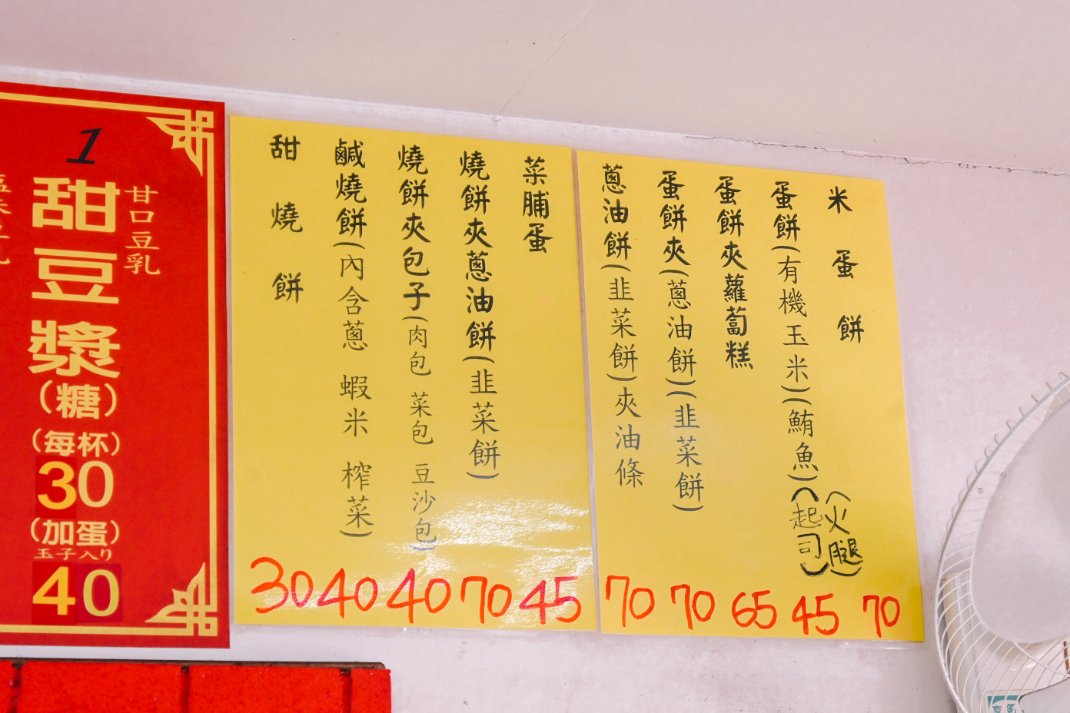 米蛋餅 70
蛋餅(有機玉米)(鮪魚)(起司)(火腿) 45
蛋餅夾蘿蔔糕 65
蛋餅夾(蔥油餅)(韭菜餅) 70
蔥油餅(韭菜餅)夾油條 70
菜脯蛋 45
燒餅夾蔥油餅(韭菜餅) 70
燒餅夾包子(肉包 菜包 豆沙包) 40
鹹燒餅(內含蔥 蝦米 榨菜) 40
甜燒餅 30
1
甘口豆乳
甜豆漿
(糖)
(每杯)
30
(加蛋)
玉子入り
40